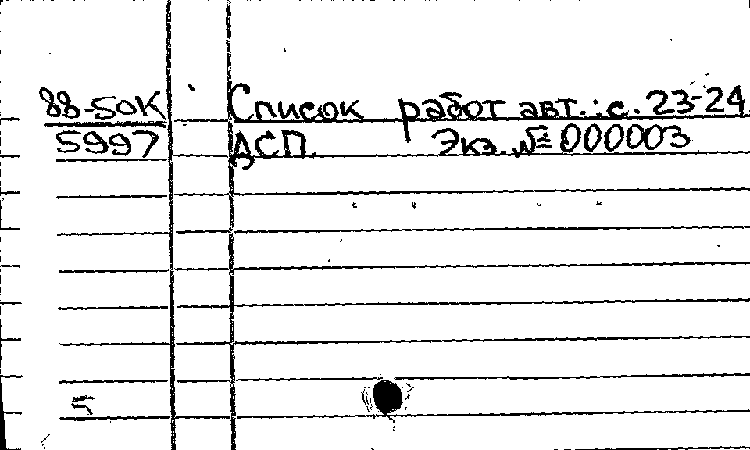 88-50К Список работ авт.: с. 23-24
5997 ДСП. Экз. № 000003
5